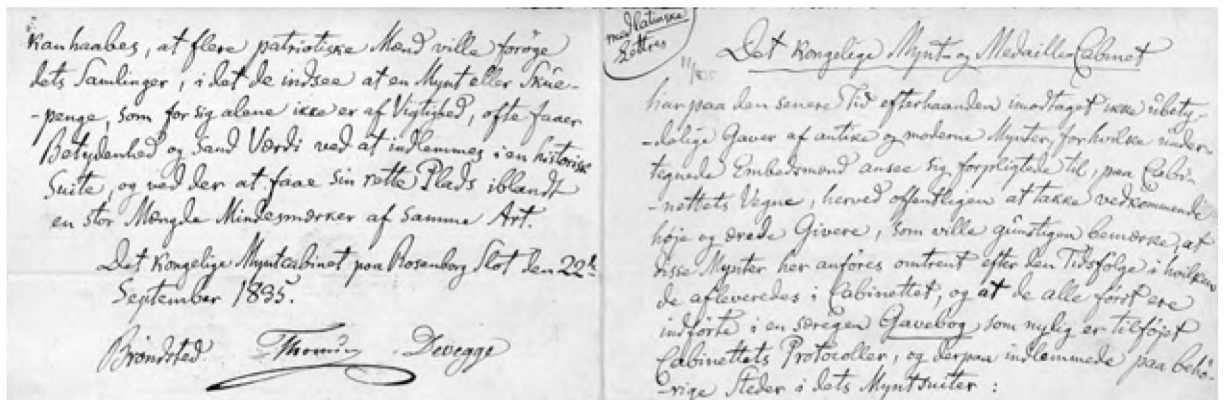 kan haabes, at flere patriotiske Mænd ville forøge
dets Samlinger, i det de indsee at en Mynt eller Skue-
-penge, som for sig alene ikke er af Vigtighed, ofte faaer
Betydenhed og sand Værdi ved at indlemmes i en historisk
Suite, og ved der at faae sin rette Plads iblandt
en stor Mængde Mindesmærker af samme Art.
Det kongelige Myntcabinet paa Rosenborg Slot den 22de
September 1835.
Brøndsted Thomsen Devegge
med latinske
Lettres
Det kongelige Mynt- og Medaille-Cabinet
har paa den senere Tid efterhaanden imodtaget ikke ubety-
-delige Gaver af antike og moderne Mynter, for hvilke under-
tegnede Embedsmænd ansee sig forpligtede til, paa Cabi-
-nettets Vegne, herved offentligen at takke vedkommende
høje og ærede Givere, som ville gunstigen bemærke, at
disse Mynter her anføres omtrent efter den Tidsfølge i hvilken
de afleveredes i Cabinettet, og at de alle først ere
indførte i en særegen Gavebog som nylig er tilføjet
Cabinettets Protocoller, og derpaa indlemmede paa behø-
-rige Steder i dets Myntsuiter: